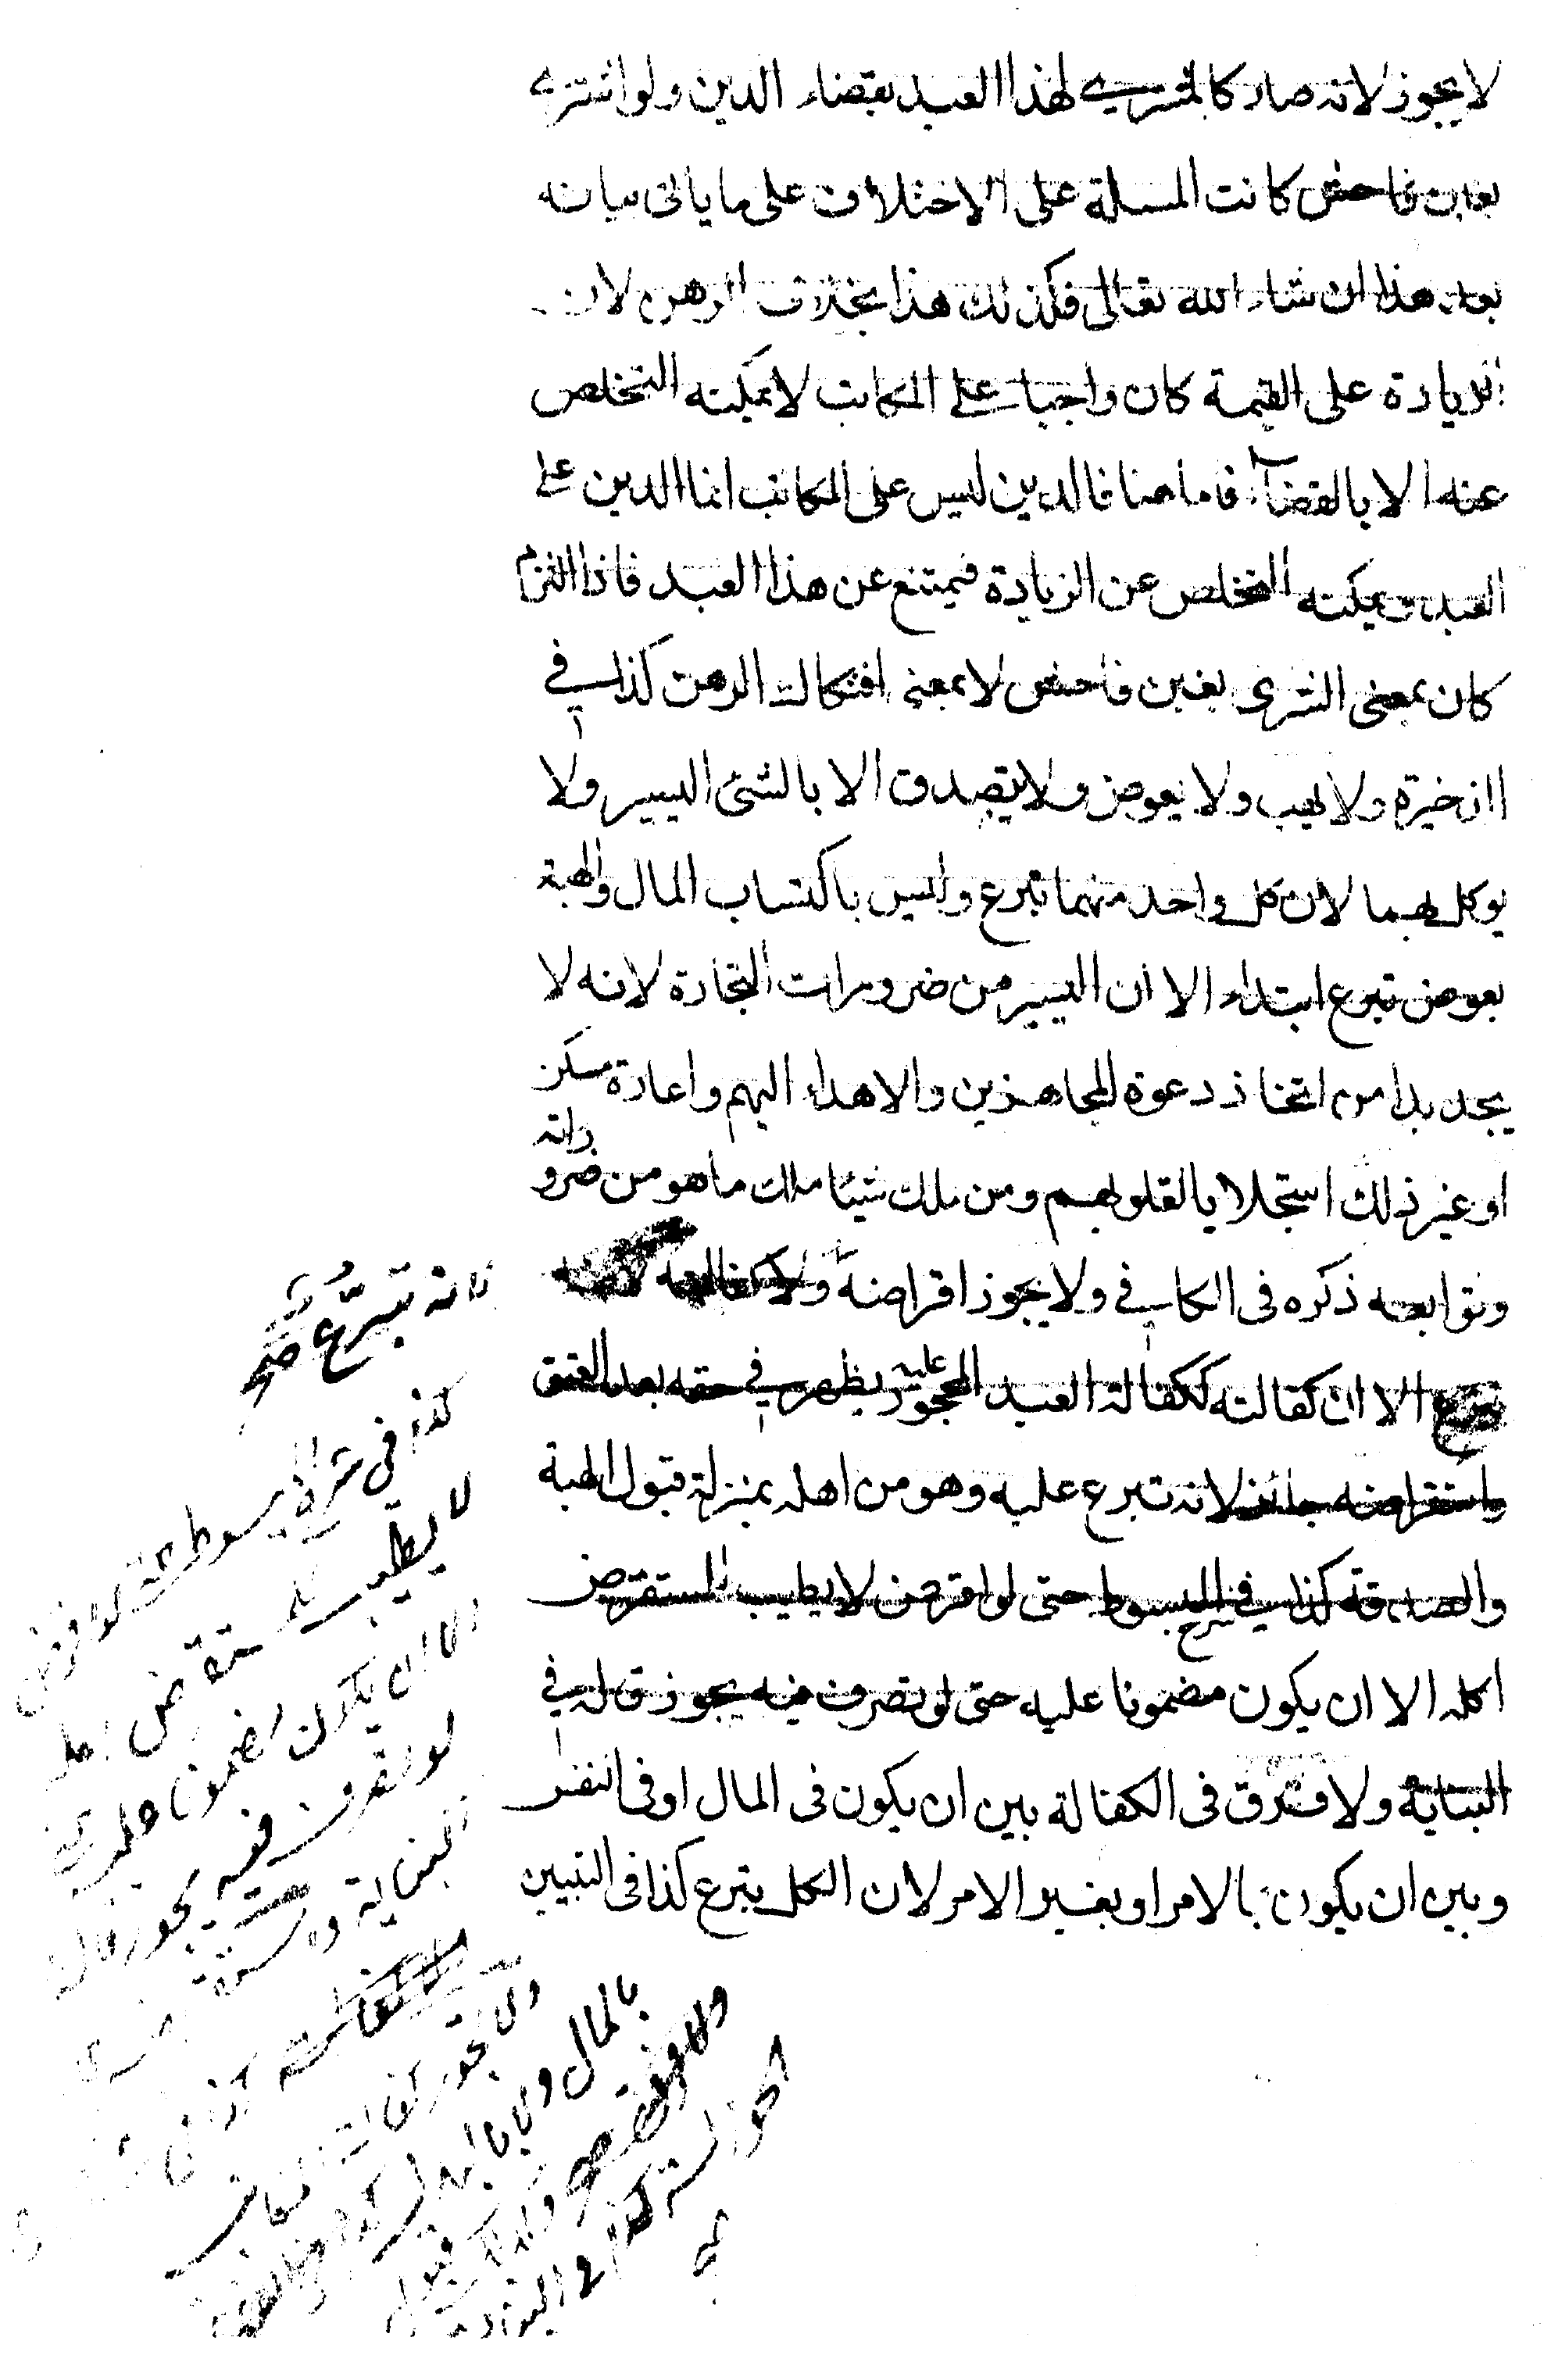 لا يجوز لانه صار كالمشترى لهذا العبد بقضاء الدين ولو اشترى
بغبن فاحش كانت المسئلة على الاختلاف على ما ياتى بيانه
بعد هذا ان شاء الله تعالى فكذلك هذا بخلاف الرهن لان
الزيادة على القيمة كان واجبا على المكاتب لا يمكنه التخلص
عنه الا بالقضاء فاما هنا فالدين ليس على المكاتب انما الدين على
العبد ويمكنه التخلص عن الزيادة فيمتنع عن هذا العبد فاذا التزم
كان بمعنى الشرى بغبن فاحش لا بمعنى افتكاك الرهن كذا في
الذخيرة ولا يهب ولا يعوض ولا يتصدق الا بالشئ اليسير ولا
يوكل بهما لان كل واحد منهما تبرع وليس باكتساب المال والهبة
بعوض تبرع ابتداء الا ان اليسير من ضرورات التجارة لانه لا
يجد بدا من اتخاذ دعوة المجاهزين والاهداء اليهم واعارة مسكن
او غير ذلك استجلابا لقلوبهم ومن ملك شيئا ملك ما هو من ضروراته
وتوابعه ذكره فى الكافي ولا يجوز اقراضه ولا كفالته لانه
تبرع الا ان كفالته ككفالة العبد المحجور عليه يظهر في حقه بعد العتق
واستقراضه جائز لانه تبرع عليه وهو من اهله بمنزلة قبول الهبة
والصدقة كذا في شرح المبسوط حتى لو اقرض لا يطيب للمستقرض
اكله الا ان يكون مضمونا عليه حتى لو تصرف فيه يجوز قاله في
البناية ولا فرق فى الكفالة بين ان يكون فى المال او فى النفس
وبين ان يكون بالامر او بغير الامر لان الكل تبرع كذا فى التبيين
لانه تبرع صح
كذا في شرح المبسوط حتى لو اقرض
لا يطيب للمستقرض اكله
الا ان يكون مضمونا عليه حتى
لو تصرف فيه يجوز قاله
البناية
ولا تجوز كفالة المكاتب
بالمال ولا بالنفس